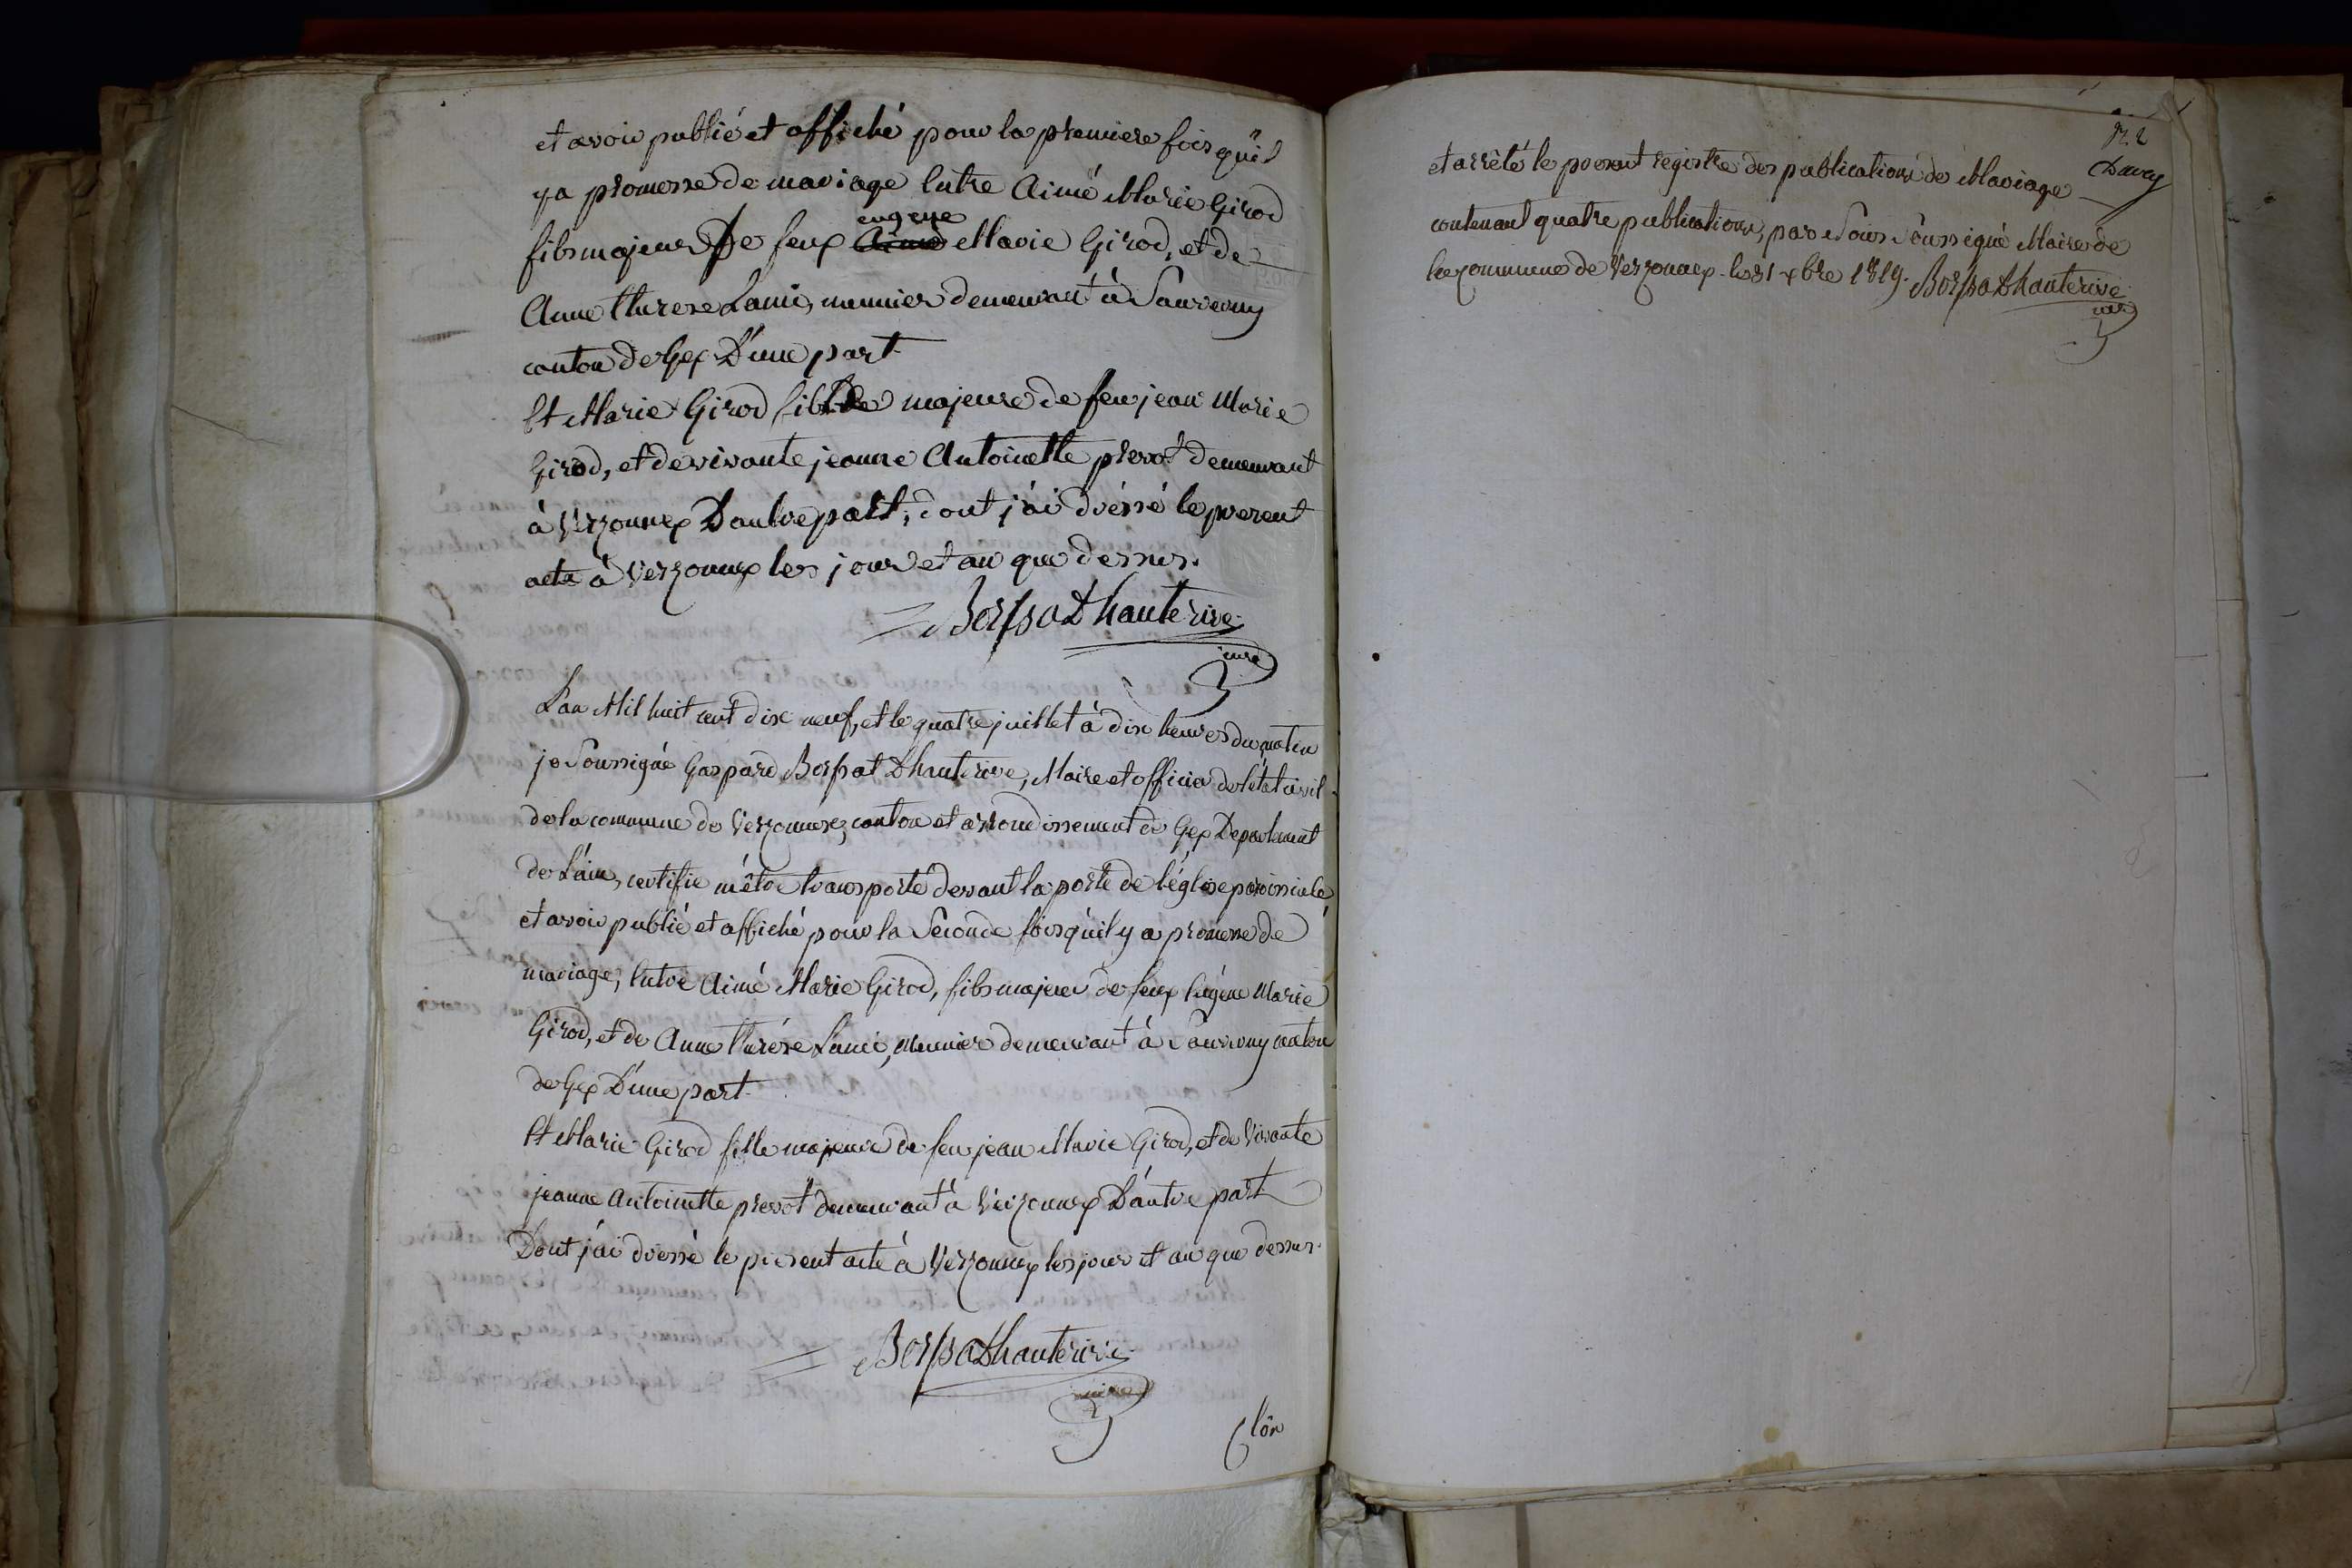 et avoir publié et affiché pour la premiere fois qu'il
y a promesse de mariage Entre Aimé Marie Girod
eugene
fils majeur De feux Aimé Marie Girod, et de
Anne therese Lami, meunier demeurant à Sauverny
canton de Gex D'une part
Et Marie Girod fille majeure de feu jean Marie
Girod, et de vivante jeanne Antoinette prevot demeurant
à Verzonnex D'autre part, dont j'ai dréssé le present
acte à Verzonnex les jour et an que dessus.
Borssat Dhauterive
maire
L'an Mil huit cent dix neuf, et le quatre juillet à dix heures du matin
je Soussigné Gaspard Borssat Dhauterive, Maire et officier de l'état civil
de la commune de Verzonnex, canton et arrondissement de Gex Departement
de L'ain, certifie m'être transporté devant la porte de l'église paroissiale
et avoir publié et affiché pour la Seconde fois qu'il y a promesse de
mariage, Entre Aimé Marie Girod, fils majeur de feux Eugéne Marie
Girod, et de Anne thérése Lami, Meunier demeurant à Sauverny canton
de Gex D'une part
Et Marie Girod fille majeure de feu jean Marie Girod, et de Vivante
jeanne Antoinette prevot demeurant à Verzonnex D'autre part
Dont j'ai dressé le present acte à Verzonnex les jour et an que dessus.
Borssat Dhauterive
maire
Clôs
et arrêté le present registre des publications de Mariage
contenant quatre publications, par Nous Soussigné Maire de
la commune de Verzonnex le 31 xbre 1819. Borssat Dhauterive